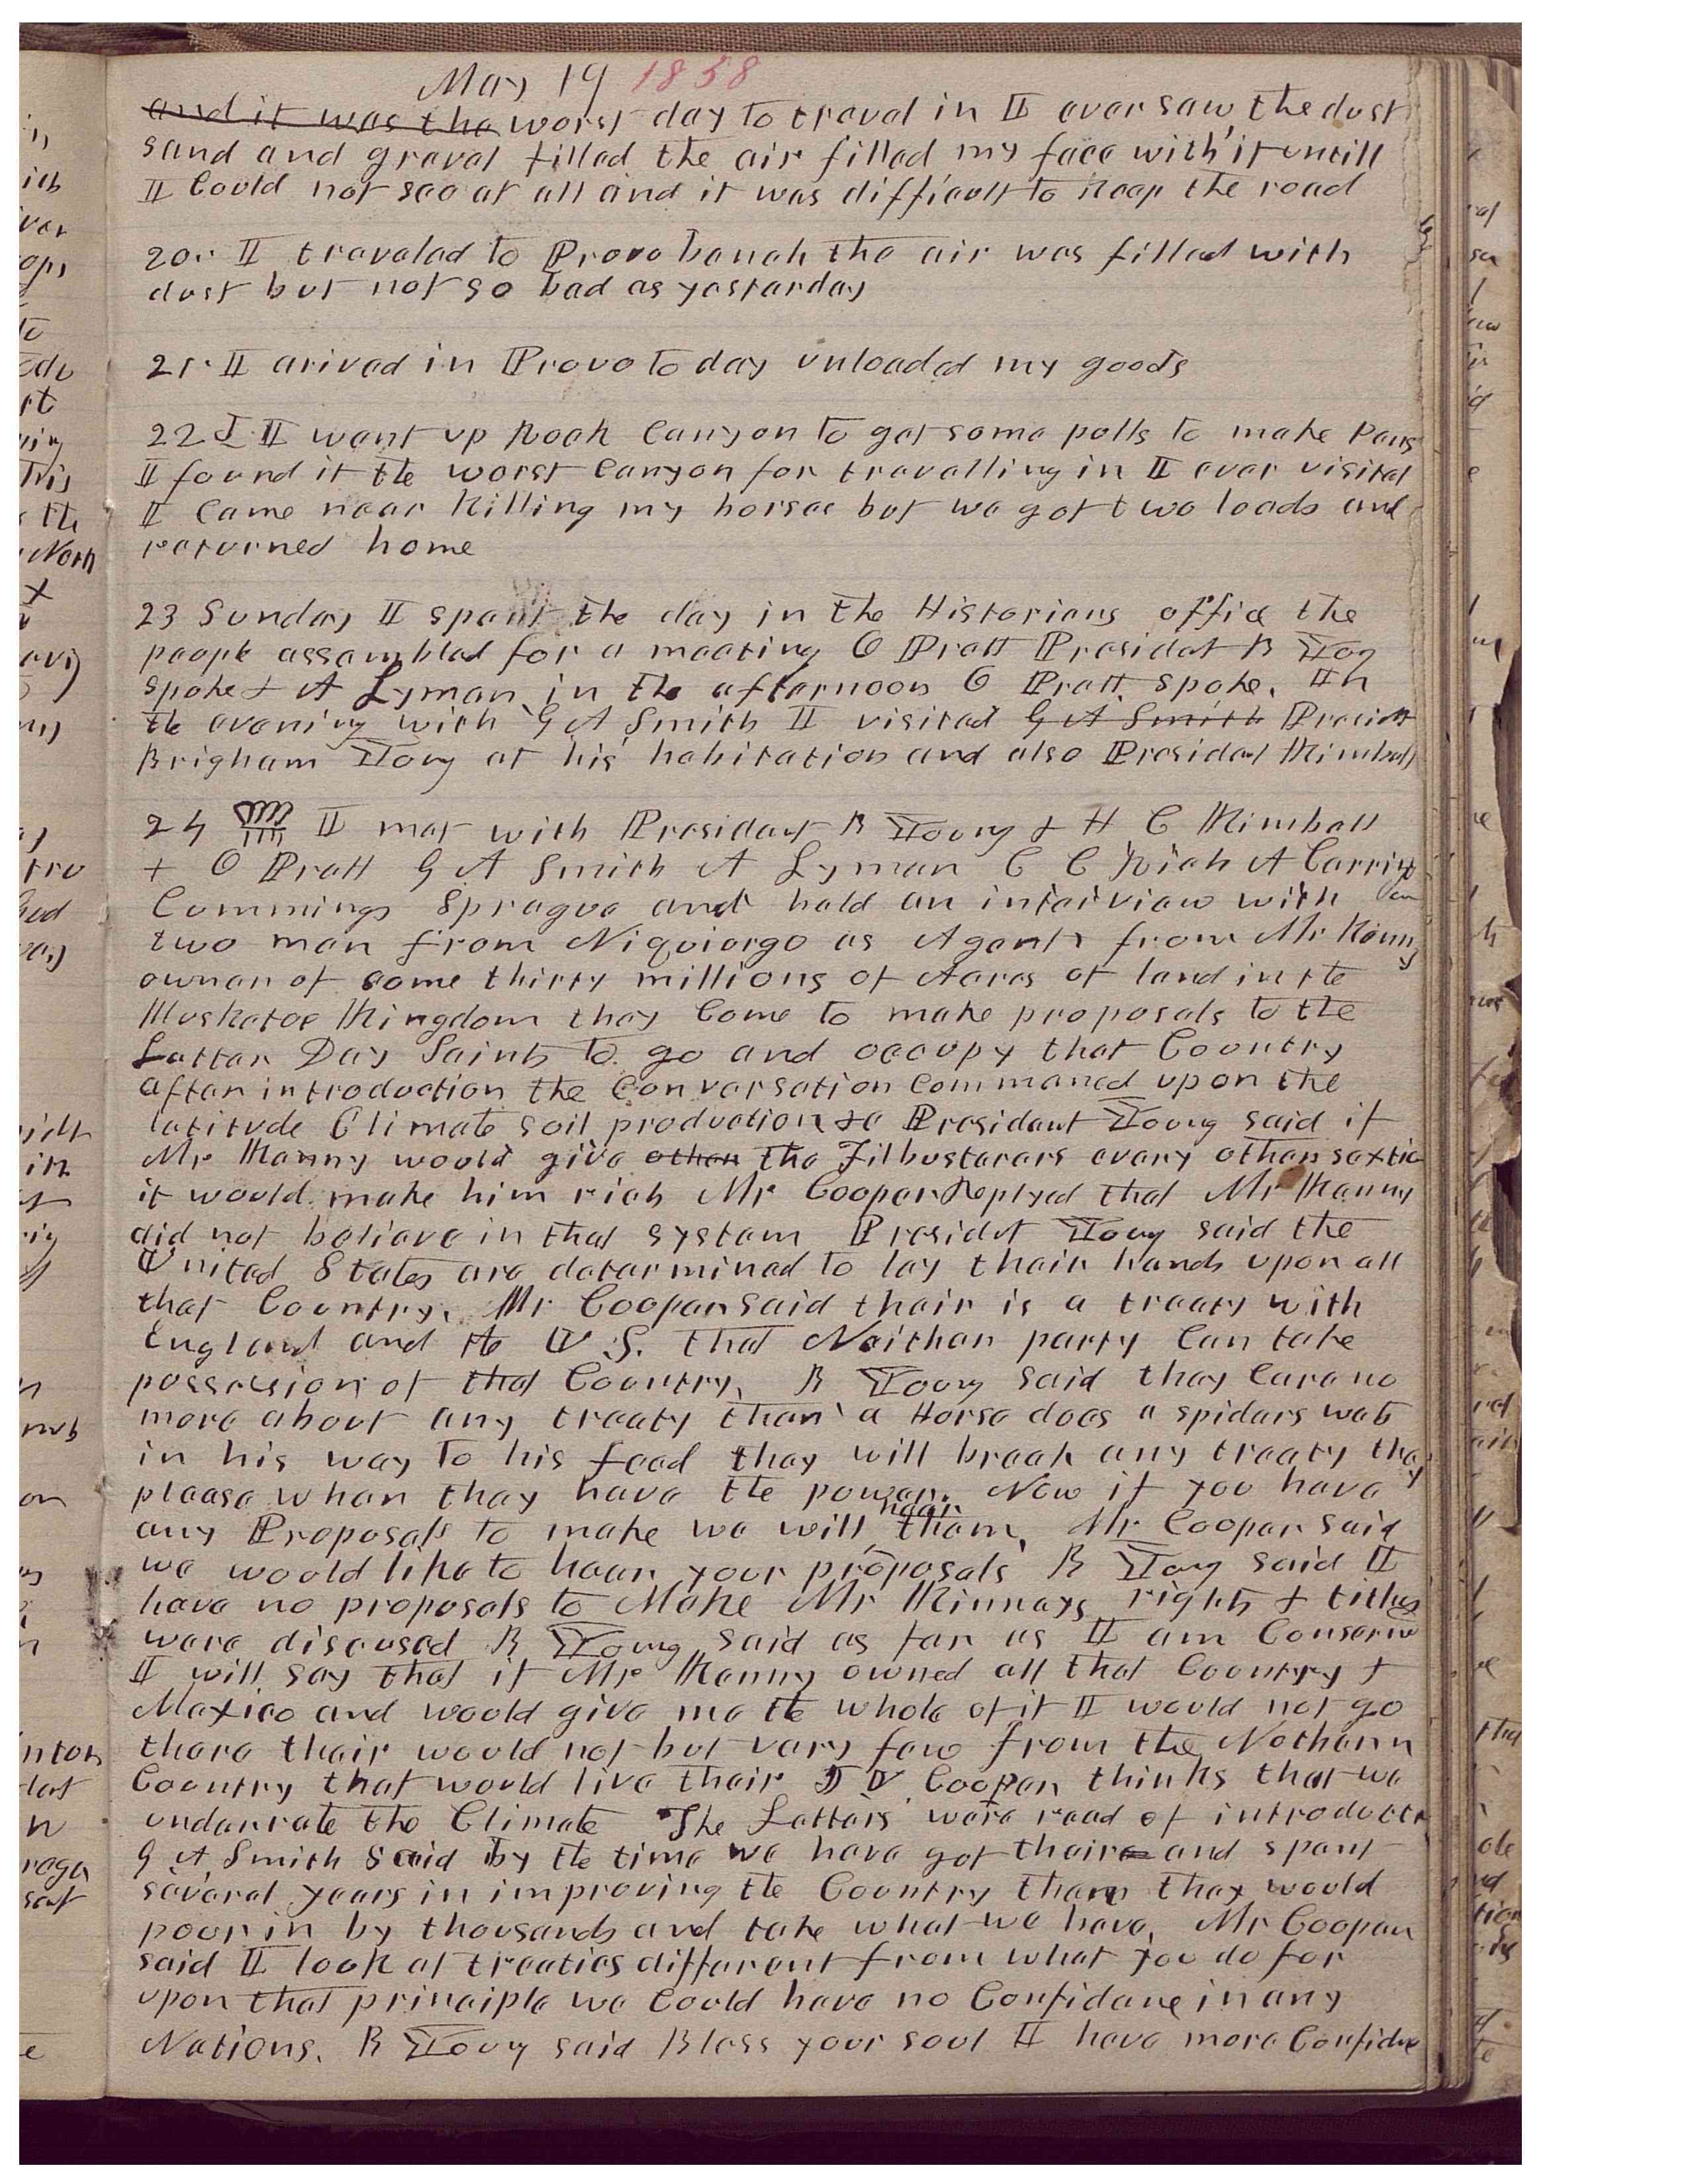 May 19 1858
and it was the worst day to travel in I ever saw the dust
sand and gravel filled the air filled my face with it untill
I Could not see at all and it was difficult to Keep the road
20.. I traveled to Provo bench the air was filled with
dust but not so bad as yesterday
21. I arived in Provo to day unloaded my goods
22 I went up Rock Canyon to get some polls to make Pens
I found it the worst Canyon for travelling in I ever visited
I Came near Killing my horses but we got two loads and
returned home
23 Sunday I spent the day in the Historians office the
people assembled for a meeting O Pratt Presidet B Yog
spoke & A Lyman in the afternoon O Pratt spoke. In
the evening with G A Smith I visited G A Smith Presidt
Brigham Young at his habitation and also President Kimball
24 I met with President B Young & H C Kimball
+ O Pratt G A Smith A Lyman C C Rich A Carring
ton
Cummings Sprague and held an interview with
two men from Niquiorgo as Agents from Mr Kinny
owner of some thirty millions of Acres of land in the
Musketoe Kingdom they Come to make proposals to the
Latter Day Saints to go and occupy that Country
after introduction the Conversation Commenced upon the
latitude Climate soil production &c President Young said if
Mr Kenny would give other the Filbusterers every other sextion
it would make him rich Mr Cooper Replyed that Mr Kenny
did not believe in that system Presidet Young said the
United States are determined to lay their hands upon all
that Country. Mr Cooper said their is a treaty with
England and the U.S. that Neither party Can take
possession of that Country. B Young said they Care no
more about any treaty than a Horse does a spiders web
in his way to his feed they will break any treaty they
please when they have the power. Now if you have
any Proposals to make we will hear them, Mr Cooper said
we would like to hear your proposals B Young said I
have no proposals to Make Mr Kinneys rights & titles
were discused B Young said as far as I am Conserned
I will say that if Mr Kenny owned all that Country &
Mexico and would give me the whole of it I would not go
there their would not but very few from the Nothern
Country that would live their J V Cooper thinks that we
underrate the Climate The Letters were read of introduct
G A Smith Said by the time we have got their and spent
several years in improving the Country then they would
poor in by thousands and take what we have, Mr Cooper
said I look at treaties different from what you do for
upon that principle we Could have no Confidence in any
Nations. B Young said Bless your soul I have more Confidence